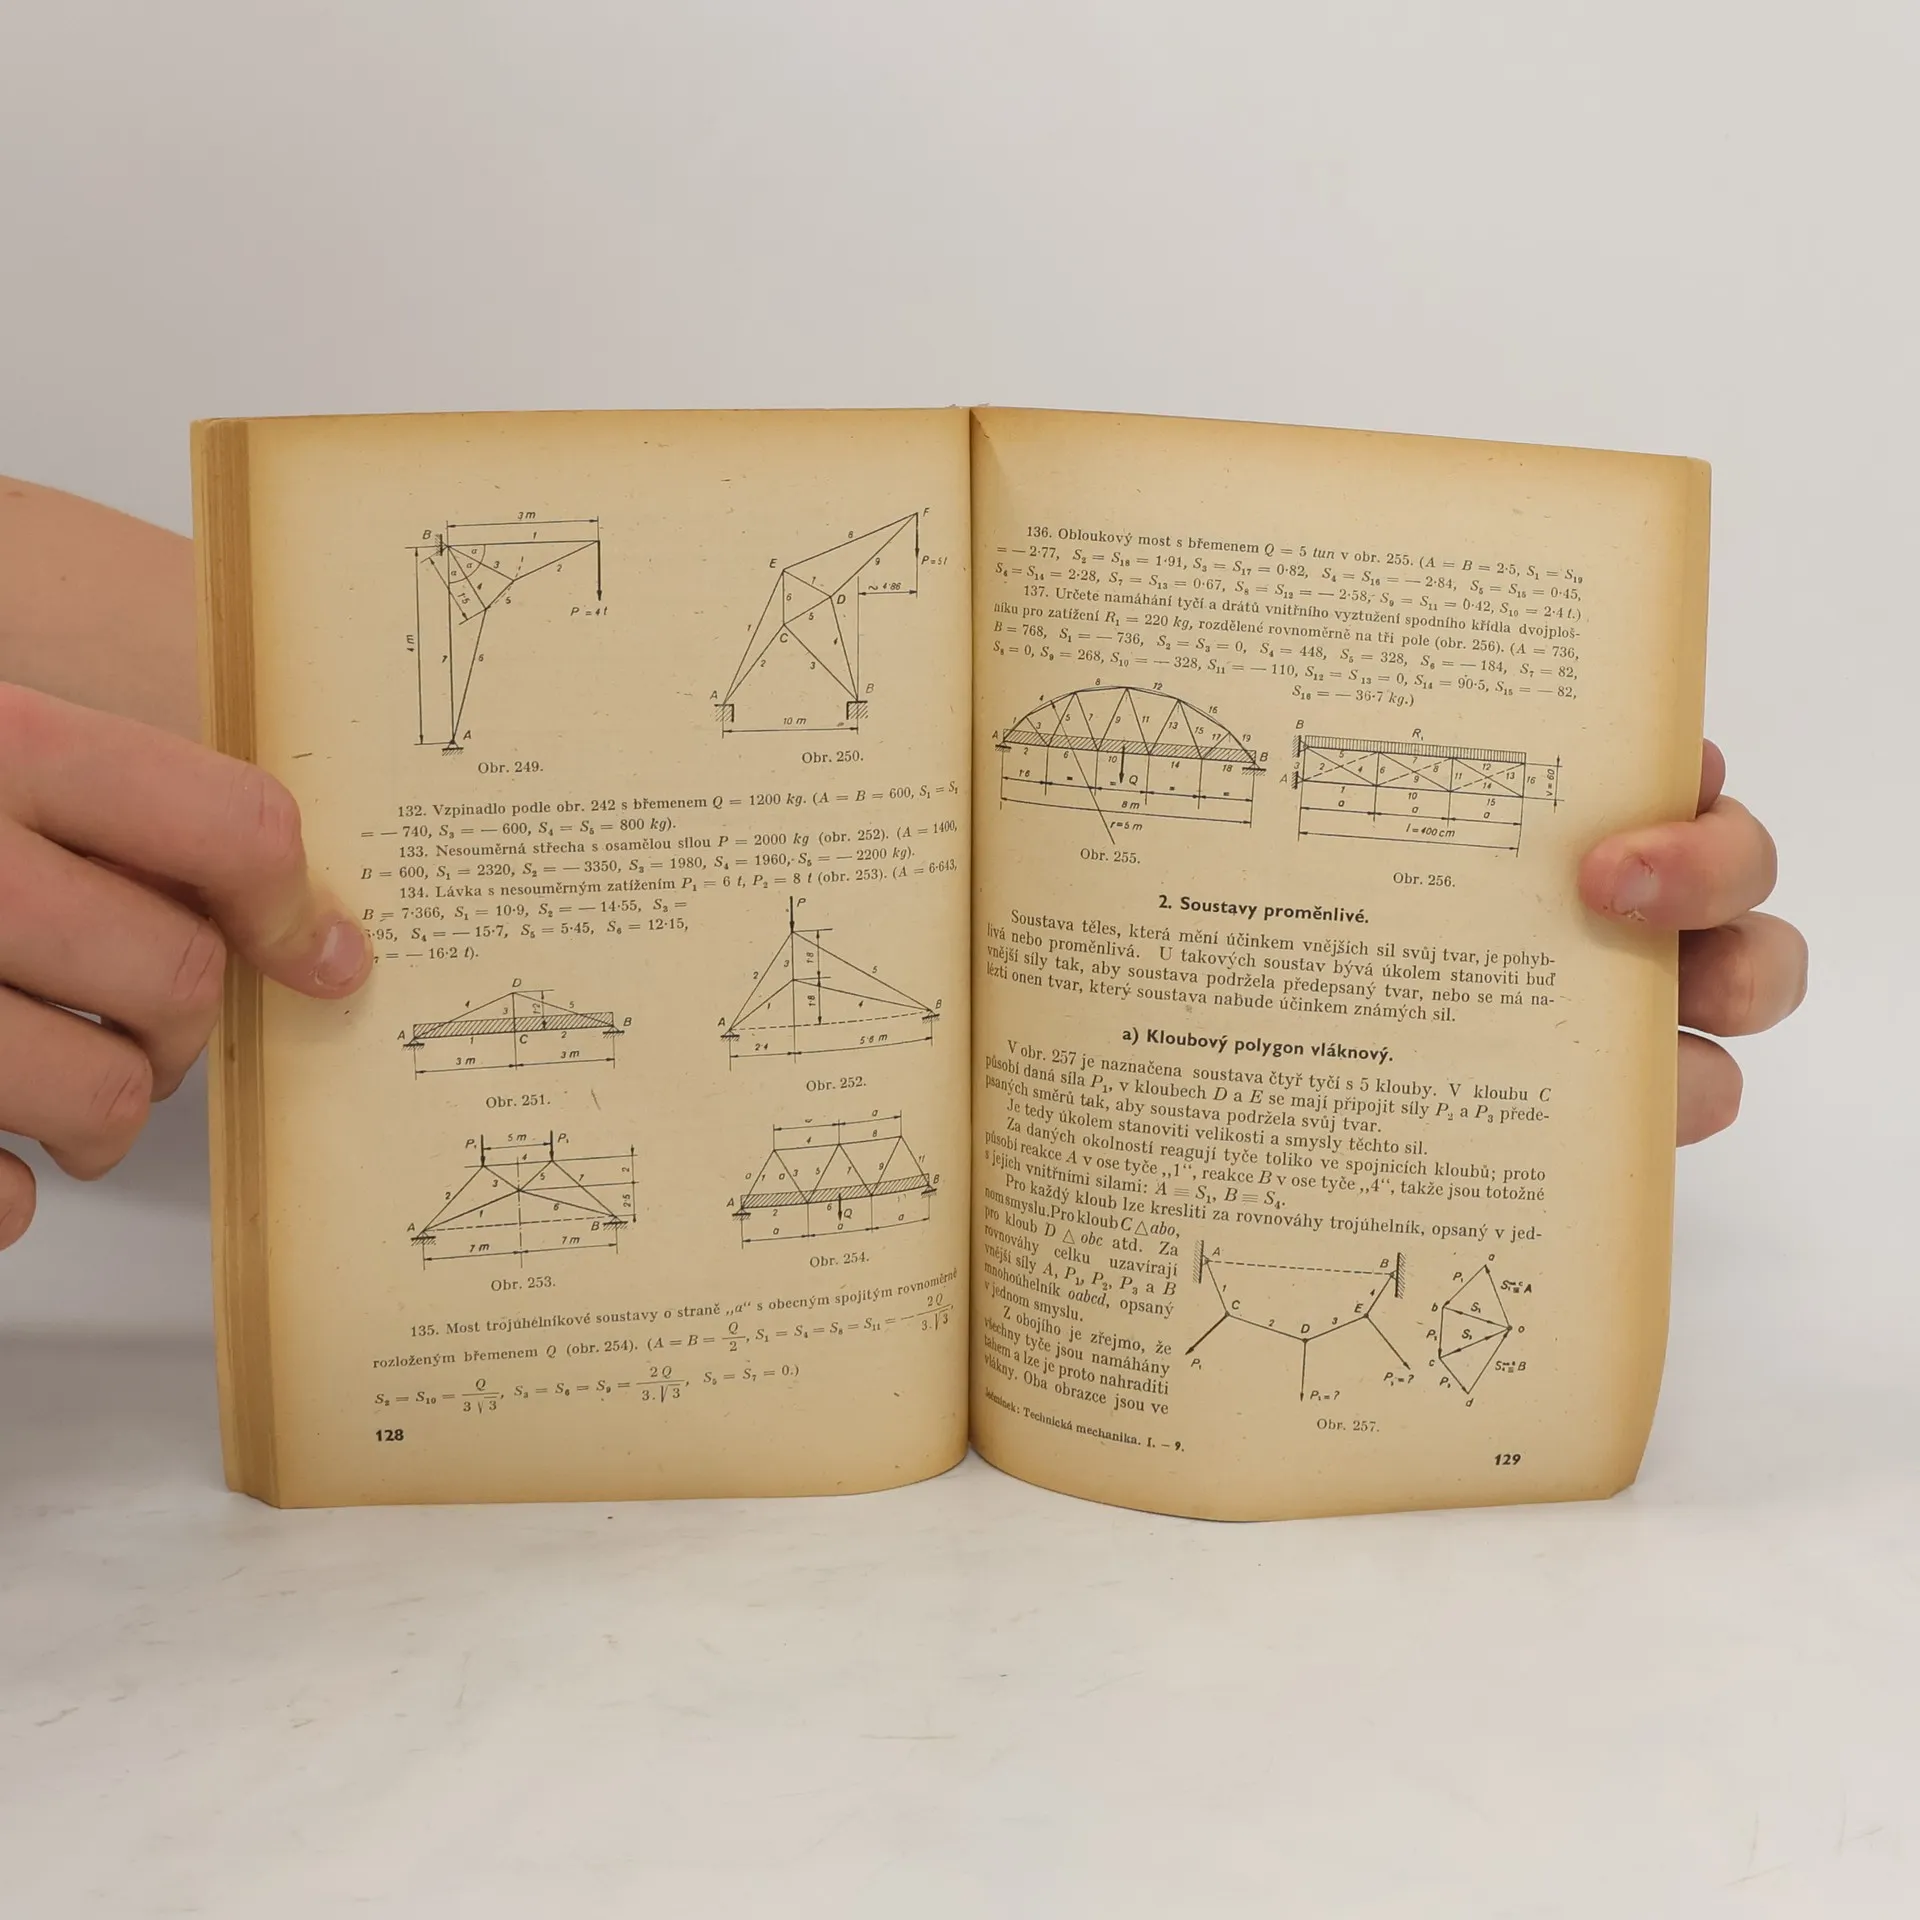 3 m
P = 4 t
4 m
Obr. 249.
P = 5 t
~ 4·86
10 m
Obr. 250.
132. Vzpinadlo podle obr. 242 s břemenem Q = 1200 kg. (A = B = 600, S₁ = S₂
= — 740, S₃ = — 600, S₄ = S₅ = 800 kg).
133. Nesouměrná střecha s osamělou silou P = 2000 kg (obr. 252). (A = 1400,
B = 600, S₁ = 2320, S₂ = — 3350, S₃ = 1980, S₄ = 1960, S₅ = — 2200 kg).
134. Lávka s nesouměrným zatížením P₁ = 6 t, P₂ = 8 t (obr. 253). (A = 6·643,
B = 7·366, S₁ = 10·9, S₂ = — 14·55, S₃ =
·95, S₄ = — 15·7, S₅ = 5·45, S₆ = 12·15,
= — 16·2 t).
3 m 3 m
Obr. 251.
2·4 5·6 m
Obr. 252.
5 m
7 m 7 m
Obr. 253.
Obr. 254.
135. Most trojúhelníkové soustavy o straně „a“ s obecným spojitým rovnoměrně
rozloženým břemenem Q (obr. 254). (A = B = Q/2, S₁ = S₄ = S₈ = S₁₁ = — 2 Q/3.√3,
S₂ = S₁₀ = Q/3 √3, S₃ = S₆ = S₉ = 2 Q/3.√3, S₅ = S₇ = 0.)
128
136. Obloukový most s břemenem Q = 5 tun v obr. 255. (A = B = 2·5, S₁ = S₁₉
= — 2·77, S₂ = S₁₈ = 1·91, S₃ = S₁₇ = 0·82, S₄ = S₁₆ = — 2·84, S₅ = S₁₅ = 0·45,
S₆ = S₁₄ = 2·28, S₇ = S₁₃ = 0·67, S₈ = S₁₂ = — 2·58, S₉ = S₁₁ = 0·42, S₁₀ = 2·4 t.)
137. Určete namáhání tyčí a drátů vnitřního vyztužení spodního křídla dvojploš-
níku pro zatížení R₁ = 220 kg, rozdělené rovnoměrně na tři pole (obr. 256). (A = 736,
B = 768, S₁ = — 736, S₂ = S₃ = 0, S₄ = 448, S₅ = 328, S₆ = — 184, S₇ = 82,
S₈ = 0, S₉ = 268, S₁₀ = — 328, S₁₁ = — 110, S₁₂ = S₁₃ = 0, S₁₄ = 90·5, S₁₅ = — 82,
S₁₆ = — 36·7 kg.)
8 m
r=5 m
Obr. 255.
R₁
l=400cm
Obr. 256.
2. Soustavy proměnlivé.
Soustava těles, která mění účinkem vnějších sil svůj tvar, je pohyb-
livá nebo proměnlivá. U takových soustav bývá úkolem stanoviti buď
vnější síly tak, aby soustava podržela předepsaný tvar, nebo se má na-
lézti onen tvar, který soustava nabude účinkem známých sil.
a) Kloubový polygon vláknový.
V obr. 257 je naznačena soustava čtyř tyčí s 5 klouby. V kloubu C
působí daná síla P₁, v kloubech D a E se mají připojit síly P₂ a P₃ přede-
psaných směrů tak, aby soustava podržela svůj tvar.
Je tedy úkolem stanoviti velikosti a smysly těchto sil.
Za daných okolností reagují tyče toliko ve spojnicích kloubů; proto
působí reakce A v ose tyče „1“, reakce B v ose tyče „4“, takže jsou totožné
s jejich vnitřními silami: A ≡ S₁, B ≡ S₄.
Pro každý kloub lze kresliti za rovnováhy trojúhelník, opsaný v jed-
nom smyslu. Pro kloub C △ abo,
pro kloub D △ obc atd. Za
rovnováhy celku uzavírají
vnější síly A, P₁, P₂, P₃ a B
mnohoúhelník oabcd, opsaný
v jednom smyslu.
Z obojího je zřejmo, že
všechny tyče jsou namáhány
tahem a lze je proto nahraditi
vlákny. Oba obrazce jsou ve
Obr. 257.
Technická mechanika. I. – 9.
129